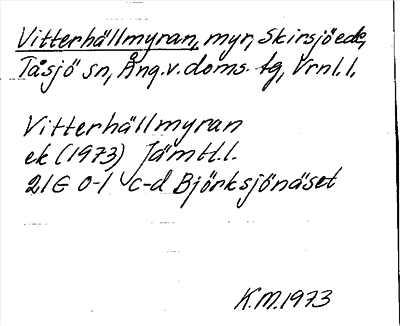 Vitterhällmyran, myr, Skirsjöeds,
Tåsjö sn, Ång.v.doms. tg, Vrnl.l.
Vitterhällmyran
ek (1973) Jämtl.l.
21G 0-1 c-d Björksjönäset
K.M. 1973